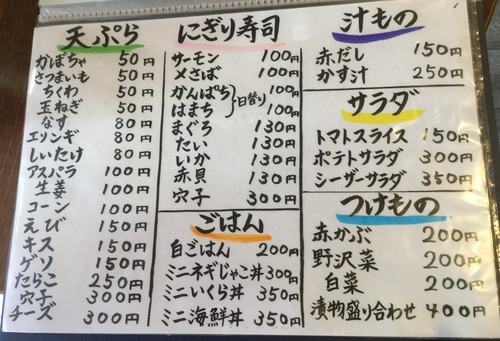 天ぷら
かぼちゃ 50円
さつまいも 50円
ちくわ 50円
玉ねぎ 50円
なす 80円
エリンギ 80円
しいたけ 80円
アスパラ 100円
生姜 100円
コーン 100円
えび 150円
キス 150円
ゲソ 150円
たらこ 250円
穴子 300円
チーズ 300円
にぎり寿司
サーモン 100円
〆さば 100円
かんぱち 日替り 100円
はまち 100円
まぐろ 130円
たい 130円
いか 130円
赤貝 130円
穴子 300円
ごはん
白ごはん 200円
ミニネギじゃこ丼 300円
ミニいくら丼 350円
ミニ海鮮丼 350円
汁もの
赤だし 150円
かす汁 250円
サラダ
トマトスライス 150円
ポテトサラダ 300円
シーザーサラダ 350円
つけもの
赤かぶ 200円
野沢菜 200円
白菜 200円
漬物盛り合わせ 400円